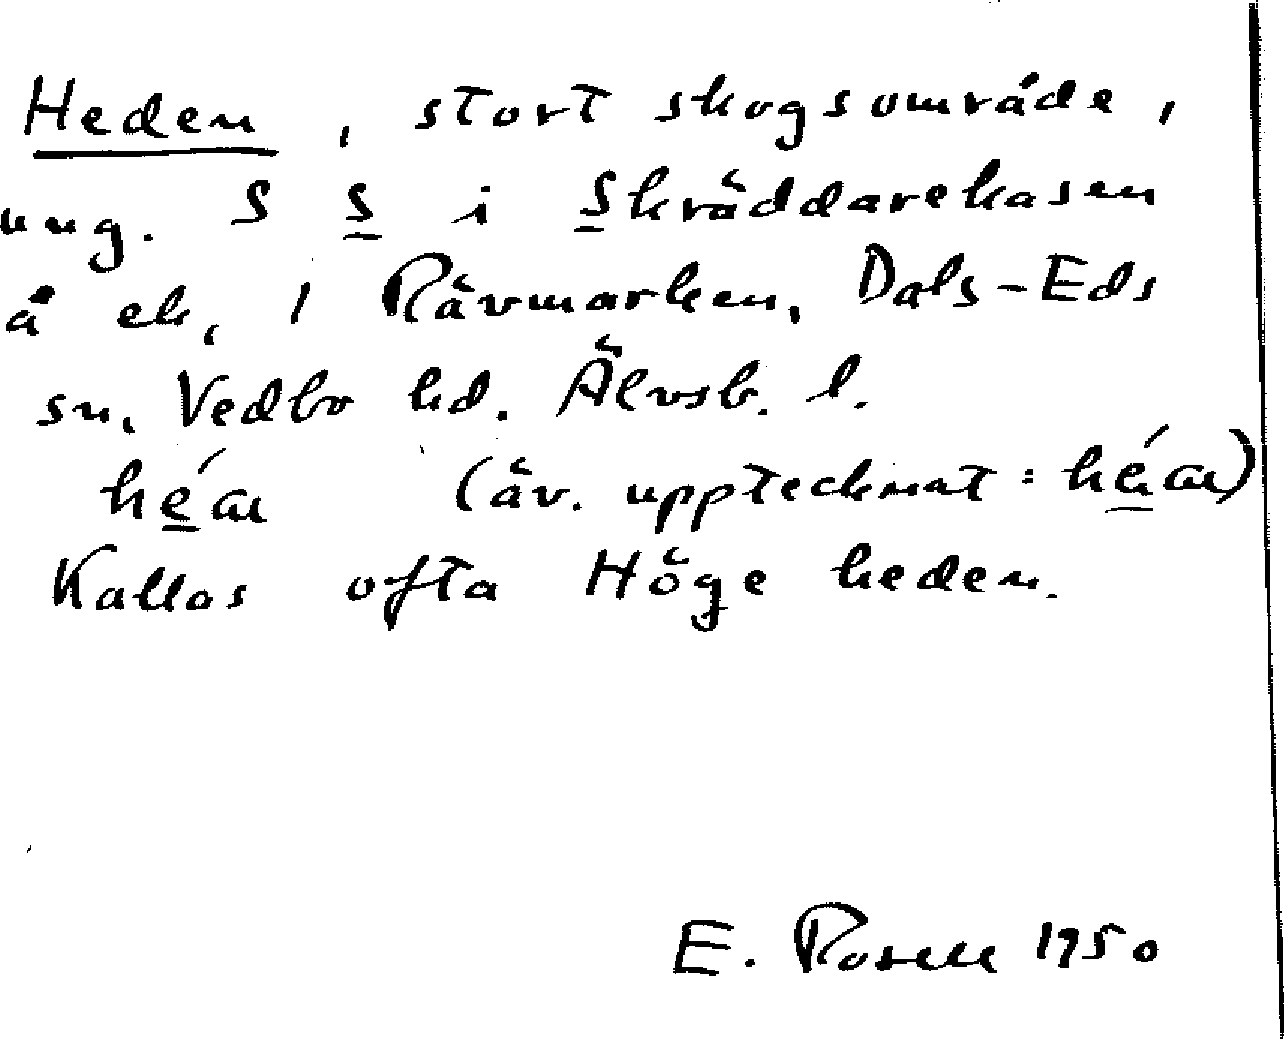 Heden, stort skogsområde,
ung. S S i Skräddarekasen
å ek, 1 Rävmarken, Dals-Eds
sn, Vedbo hd. Älvsb. l.
héa (äv. upptecknat: héa)
Kallas ofta Höge heden.
E. Rosell 1950